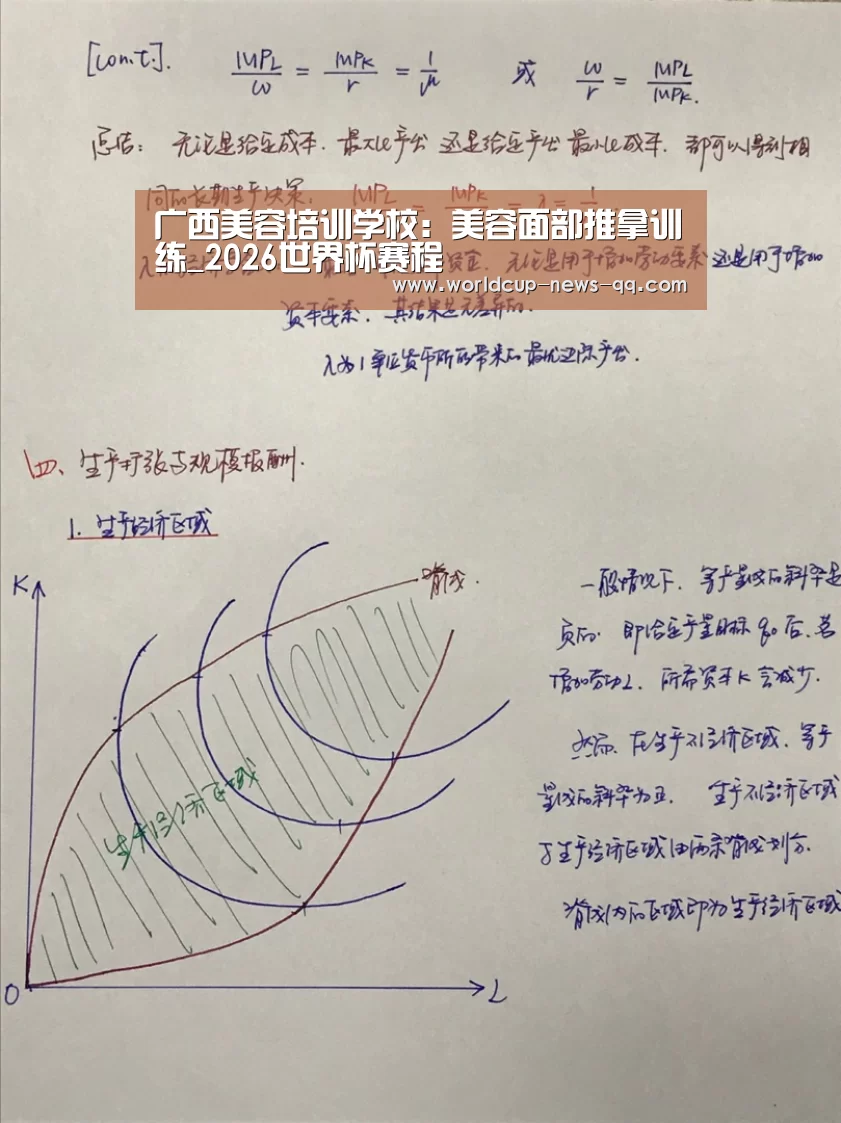 [con.t.]. MPL/w = MPK/r = 1/μ 或 w/r = MPL/MPK.
总结: 无论是给定成本, 最大化产出 还是给定产出 最小化成本, 都可以得到相
同的长期生产决策: MPL = MPK = λ = 1
广西美容培训学校：美容面部推拿训
练_2026世界杯赛程
资金, 无论是用于增加劳动要素 还是用于增加
www.worldcup-news-qq.com
资本要素, 其结果是无差异的.
λ为1单位货币所能带来的最优边际产出.
四、生产扩张与规模报酬.
1. 生产经济区域
K
脊线.
一般情况下, 等产量线的斜率是
负的. 即给定产量目标 q0 后, 若
增加劳动L, 所需资本K会减少.
然而, 在生产不经济区域, 等产
量线的斜率为正. 生产不经济区域
与生产经济区域由两条脊线划分.
脊线内的区域即为生产经济区域
生产经济区域
O
L